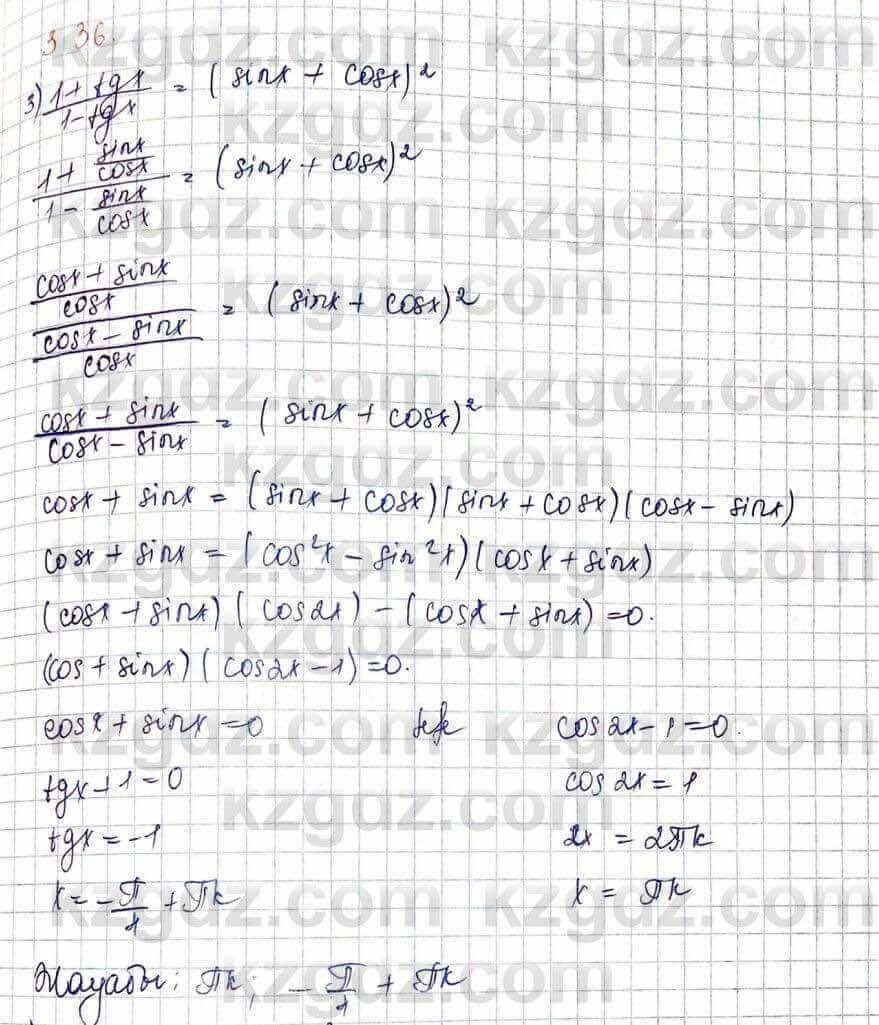 3 36.
3) (1+tgx)/(1-tgx) = (sinx + cosx)²
(1+ sinx/cosx)/(1- sinx/cosx) = (sinx + cosx)²
((cosx + sinx)/cosx)/((cosx - sinx)/cosx) = (sinx + cosx)²
(cosx + sinx)/(cosx - sinx) = (sinx + cosx)²
cosx + sinx = (sinx + cosx)(sinx + cosx)(cosx - sinx)
cosx + sinx = (cos²x - sin²x)(cosx + sinx)
(cosx + sinx)(cos2x) - (cosx + sinx) = 0.
(cos + sinx)(cos2x - 1) = 0.
cosx + sinx = 0 cos2x - 1 = 0.
tgx + 1 = 0 cos2x = 1
tgx = -1 2x = 2πk
x = -π/4 + πk x = πk
Жауабы: πk; -π/4 + πk
kzgdz.com